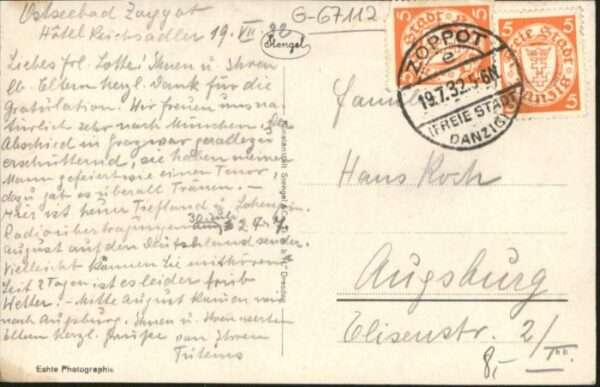 Ostseebad Zoppot
Hôtel Reichsadler 19. VII. 32
G-67112
Stengel
Liebes Frl. Lotte! Ihnen u Ihren
lb. Eltern herzl. Dank für die
Gratulation. Wir freuen uns na-
türlich sehr nach München. Der
Abschied in Graz war geradezu
erschütternd, sie haben meinen
Mann gefeiert wie einen Tenor,
dazu gab es überall Tränen. –
Hier ist heuer Tiefland u. Lohengrin.
Radioübertragungen 30 Juli 2 u 4
August auf den Deutschlandsender.
Vielleicht können Sie mithören.
Seit 2 Tagen ist es leider trüb
Wetter. – Mitte August kommen wir
nach Augsburg. Ihnen u Ihren werten
Eltern herzl. Grüsse von Ihrem
Echte Photographie
5 Freie Stadt Danzig 5
5 Freie Stadt Danzig 5
ZOPPOT
e
19.7.32.5-6N.
(FREIE STADT
DANZIG)
Familie
Hans Koch
Augsburg
Elisenstr. 2/
III.
8,-